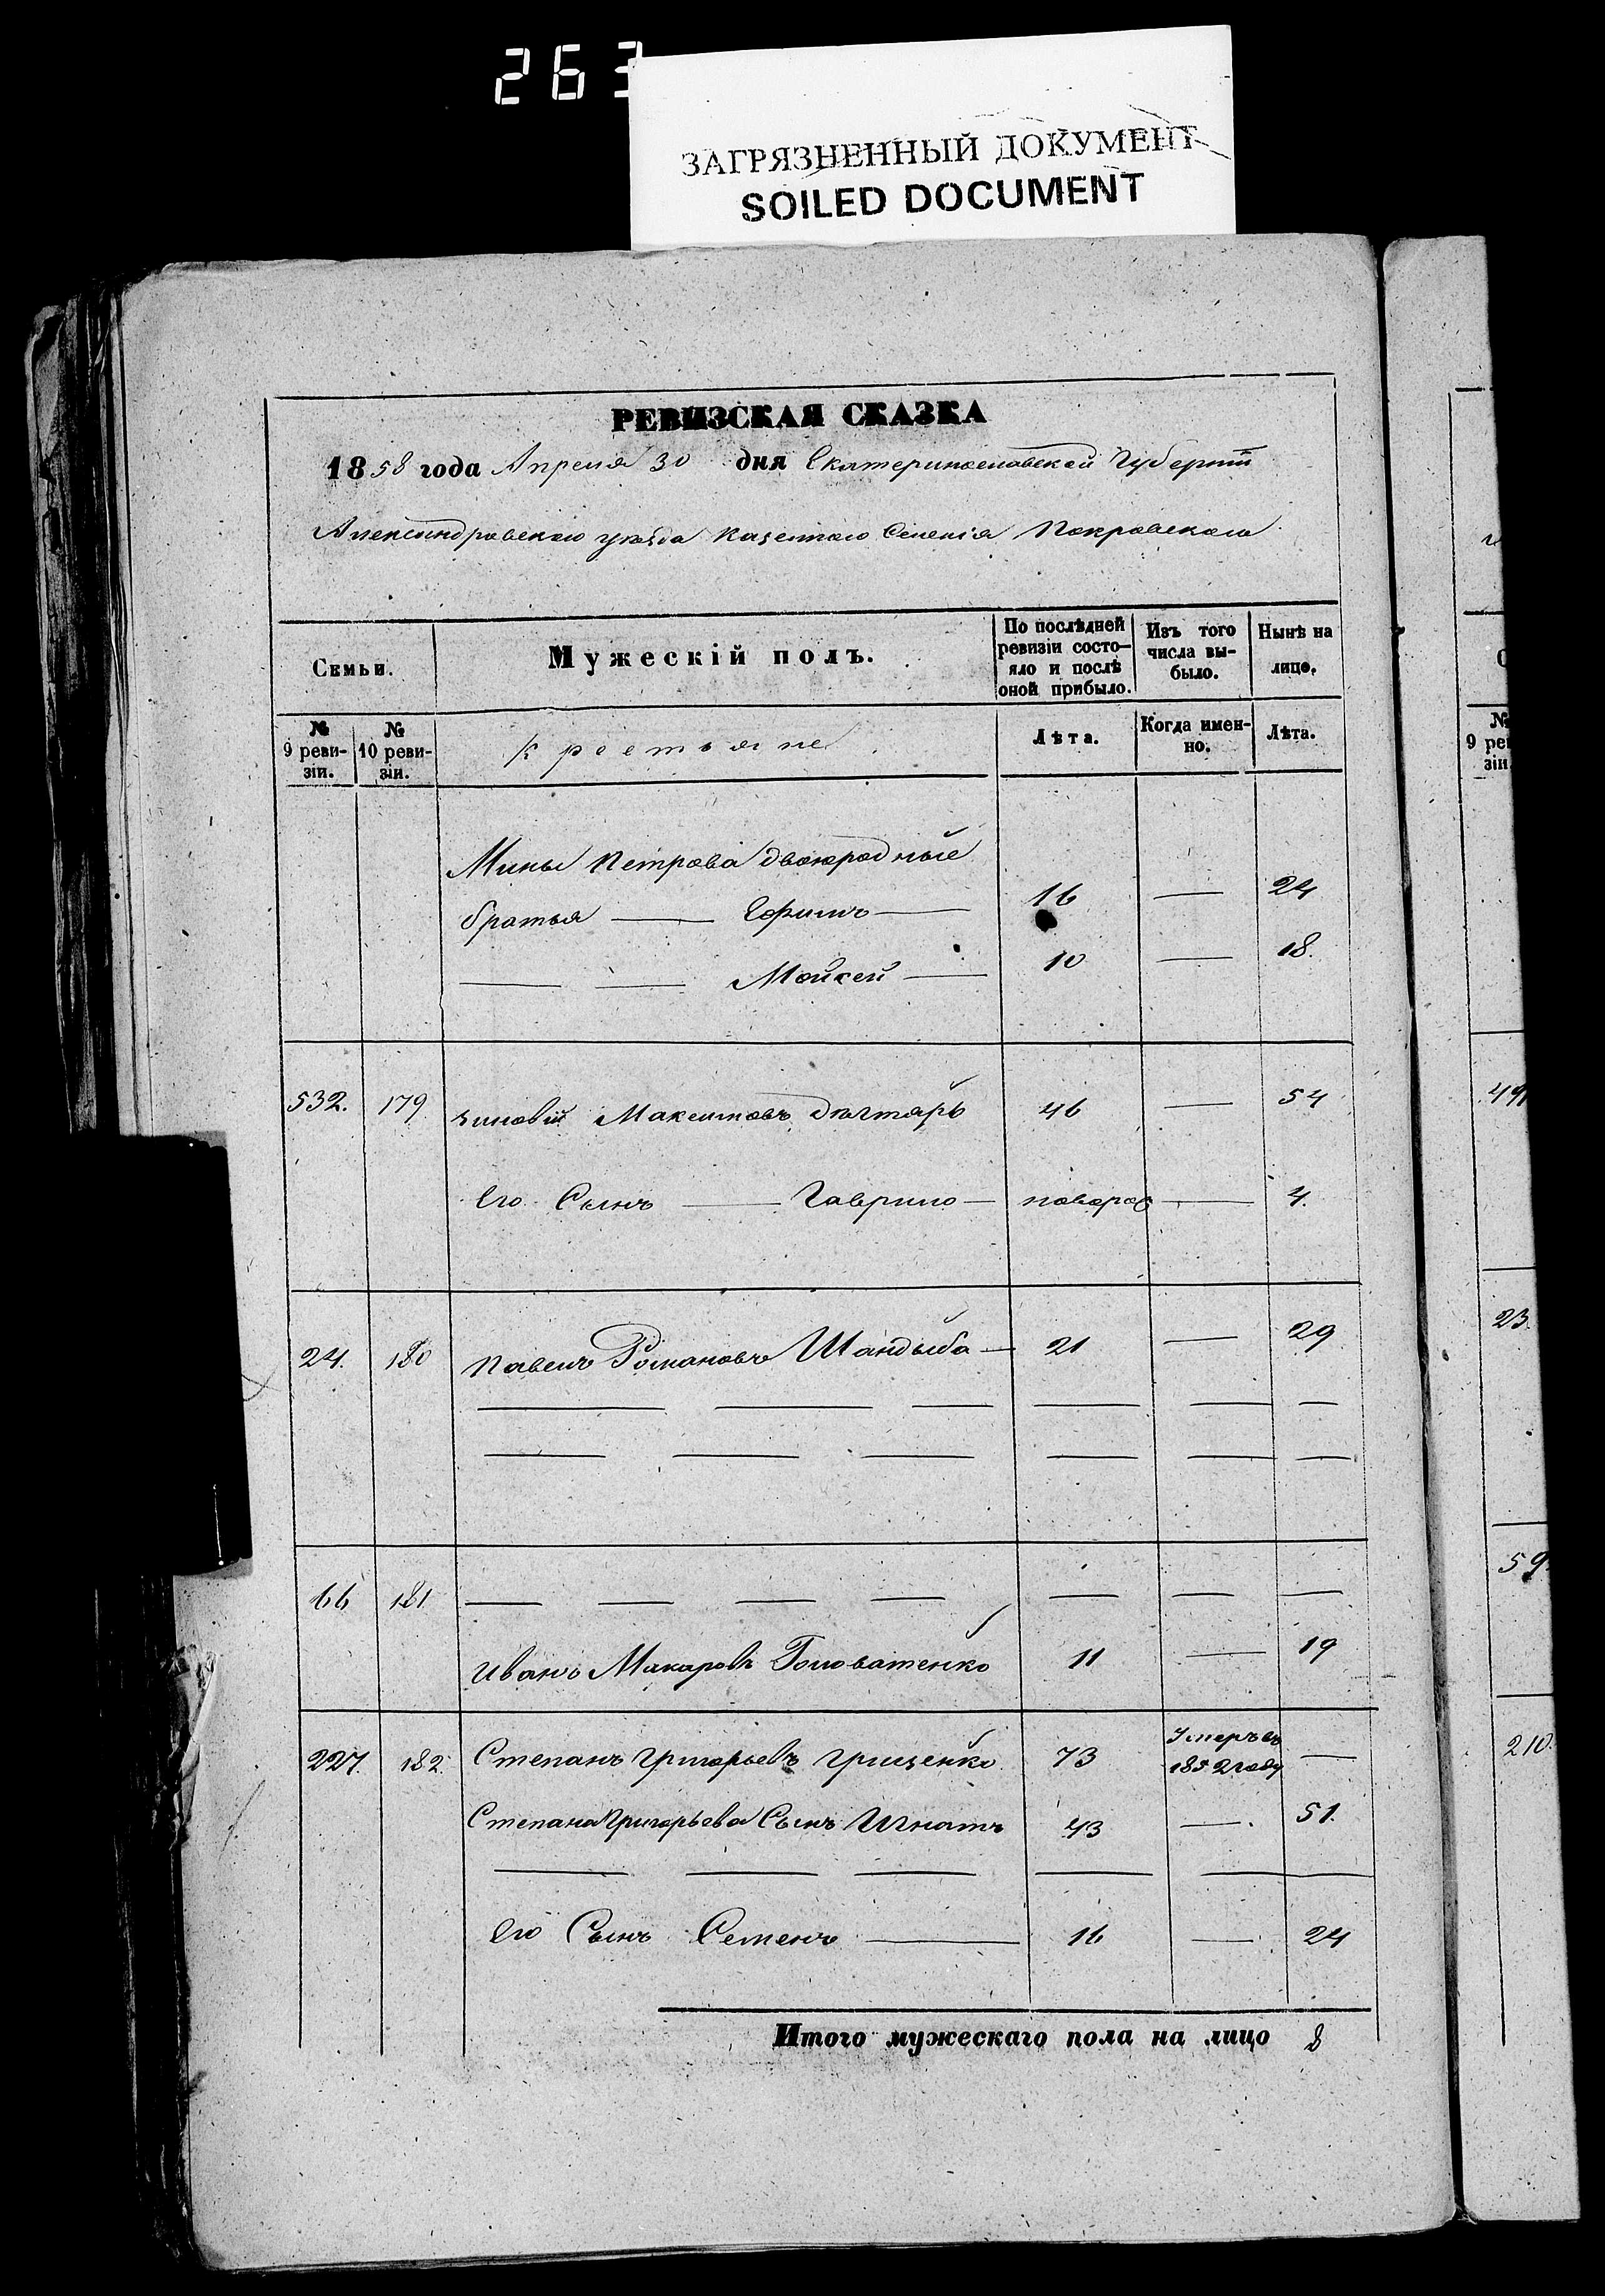 263
ЗАГРЯЗНЕННЫЙ ДОКУМЕНТ
SOILED DOCUMENT
РЕВИЗСКАЯ СКАЗКА
1858 года Апреля 30 дня Екатеринославской Губерніи
Александровскаго уѣзда Казеннаго Селенія Покровскаго
Семьи. Мужескій полъ. По послѣдней ревизіи состояло и послѣ оной прибыло. Изъ того числа выбыло. Нынѣ на лицо.
№ 9 ревизіи. № 10 ревизіи. Крестьяне Лѣта. Когда именно. Лѣта.
Мины Петрова двоюродные
братья — Ефимъ — 16 — 24
— — Мойсей — 10 — 18.
532. 179 Зиновій Максимовъ Дѣхтярь 46 — 54
Его Сынъ — Гаврило — новорож — 4.
24. 180 Павелъ Романовъ Шандыба — 21 — 29
— — — — — —
— — — — — —
66 181 — — — — — — —
Иванъ Макаровъ Головатенко 11 — 19
227. 182. Степанъ Григорьевъ Грищенко 73 Умеръ въ 1852 году —
Степана Григорьева Сынъ Игнатъ 43 — 51.
— — — — —
Его Сынъ Семенъ — 16 — 24
Итого мужескаго пола на лицо 8
№
9 рев
зіи
49
23.
59
210.